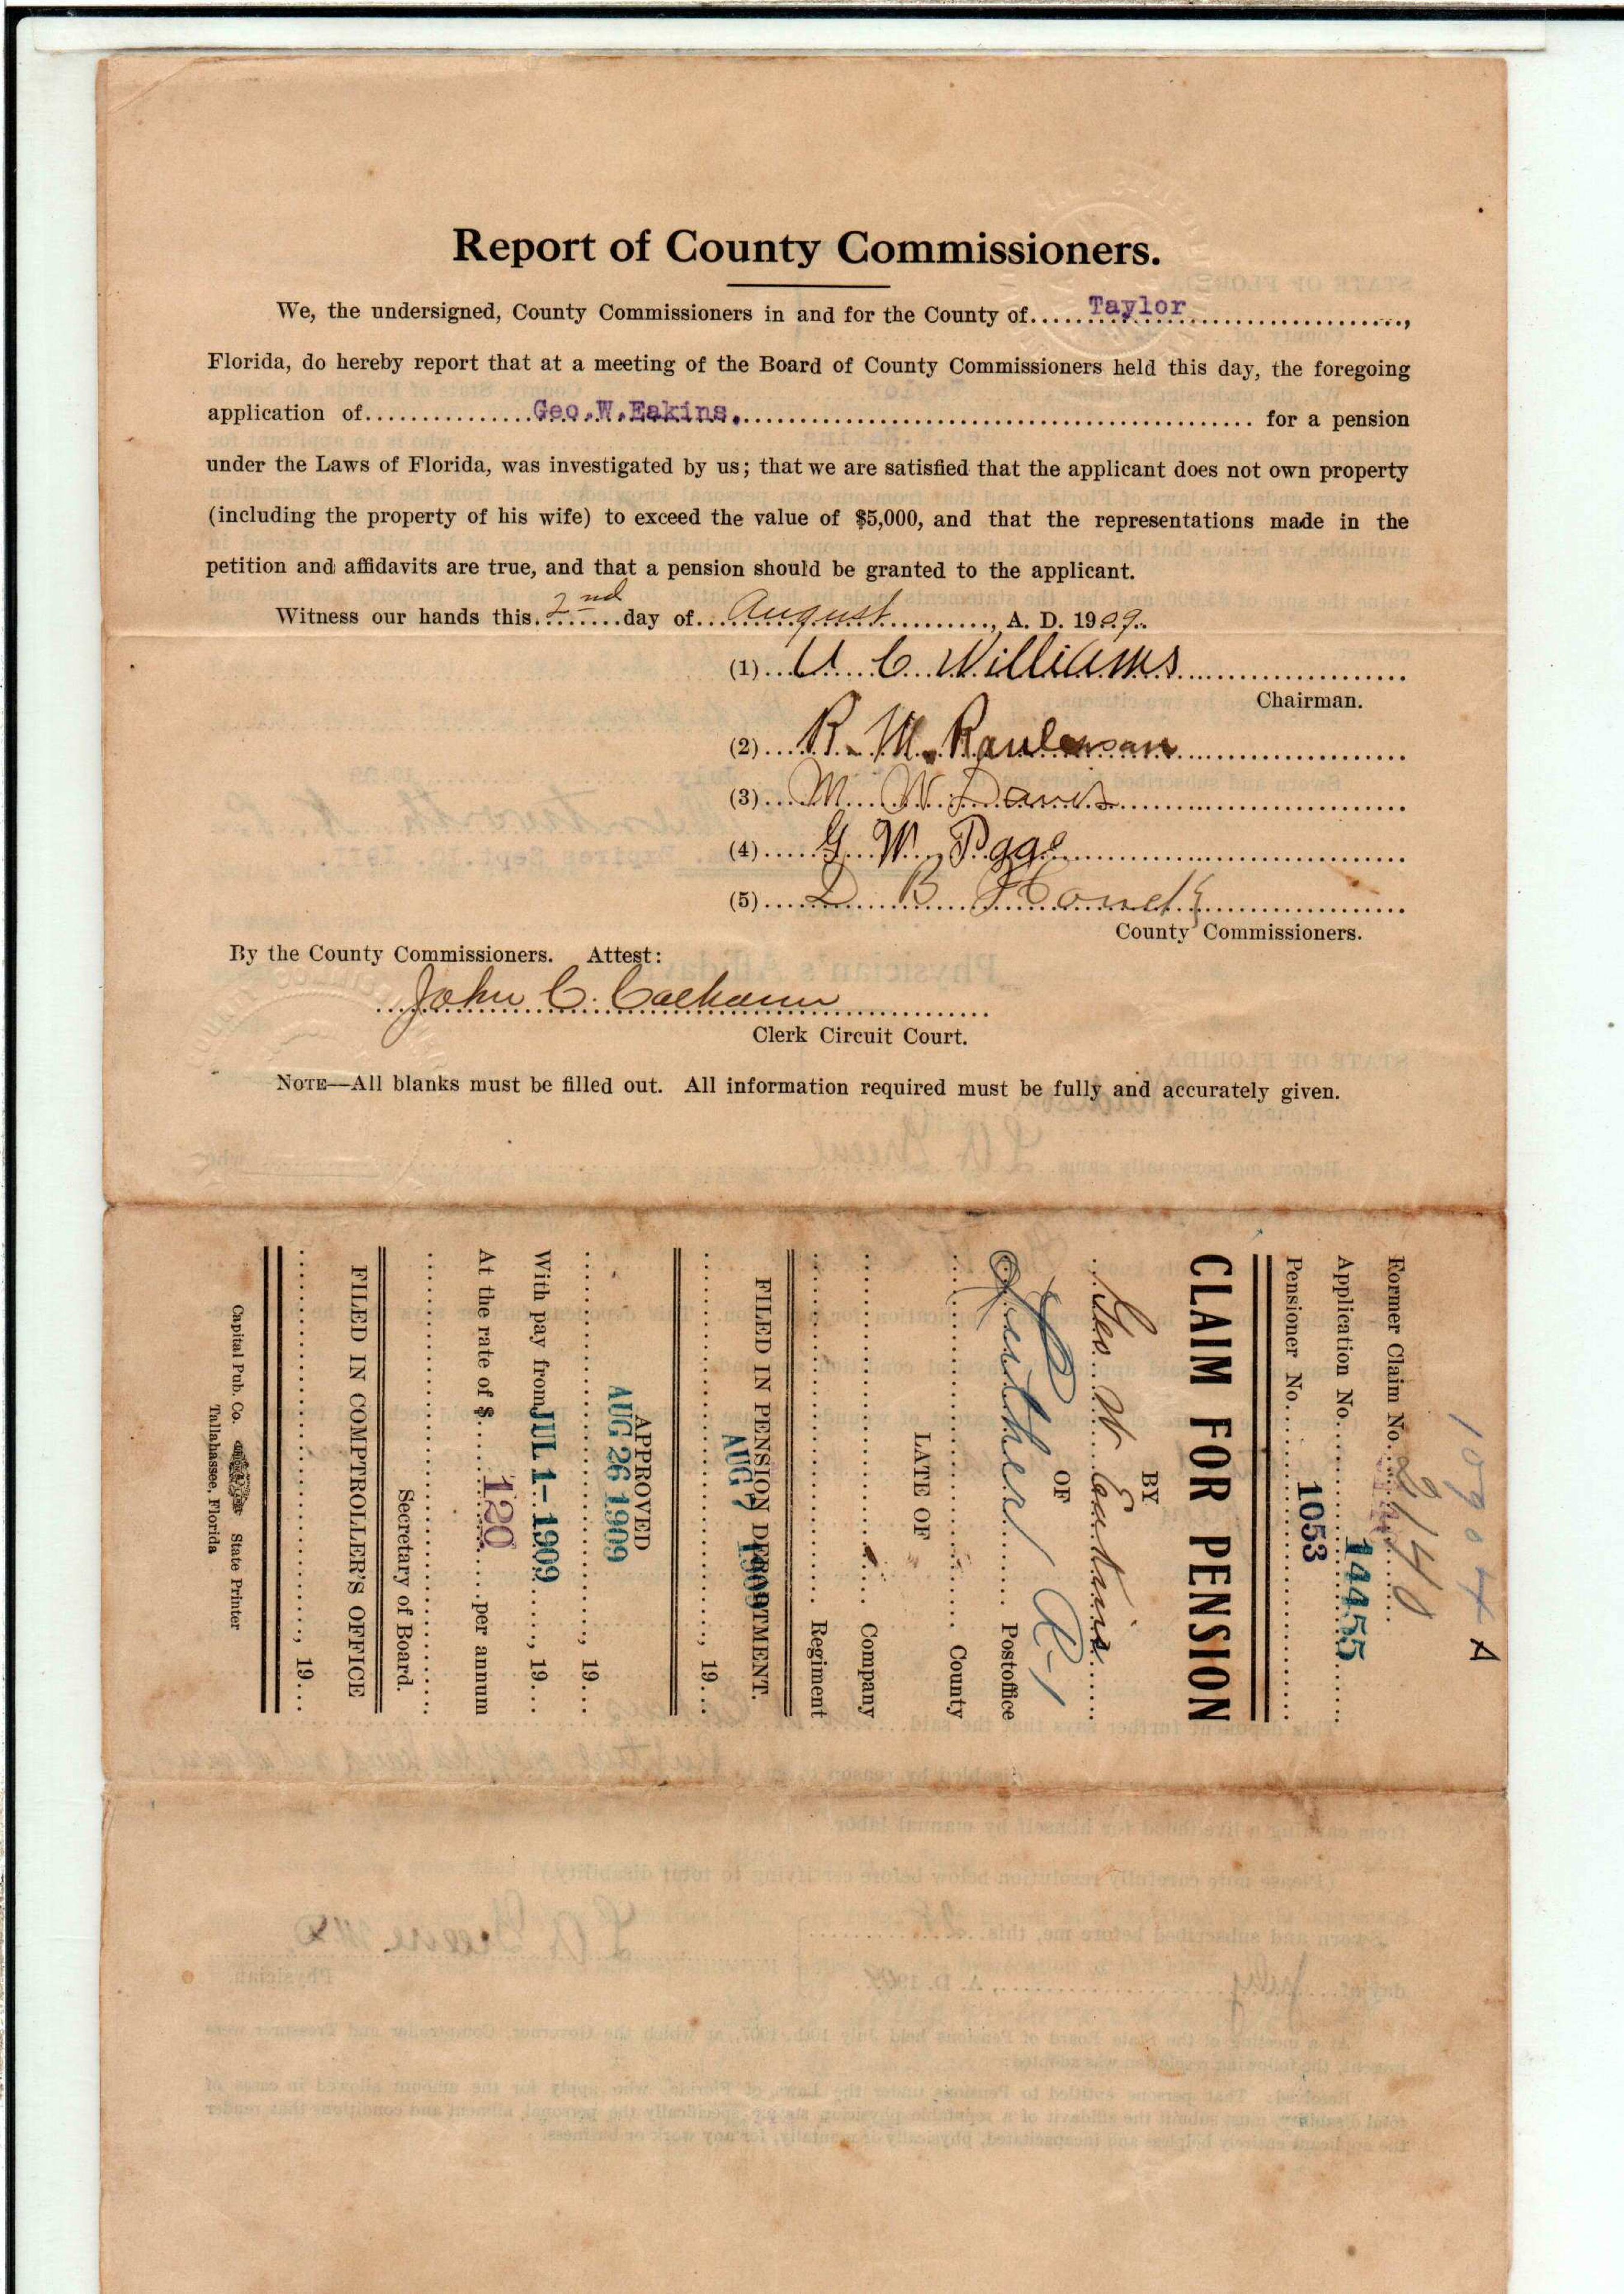 Report of County Commissioners.
We, the undersigned, County Commissioners in and for the County of.....Taylor....................,
Florida, do hereby report that at a meeting of the Board of County Commissioners held this day, the foregoing
application of...............Geo.W.Eakins....................................................... for a pension
under the Laws of Florida, was investigated by us; that we are satisfied that the applicant does not own property
(including the property of his wife) to exceed the value of $5,000, and that the representations made in the
petition and affidavits are true, and that a pension should be granted to the applicant.
Witness our hands this 2nd day of August, A. D. 1909.
(1) U. C. Williams
Chairman.
(2) R. M. Raulerson
(3) M. W. Davis
(4) G. W. Page
(5) D B
County Commissioners.
By the County Commissioners. Attest:
John C. Calhoun
Clerk Circuit Court.
NOTE—All blanks must be filled out. All information required must be fully and accurately given.
A
Former Claim No. 2140
Application No. 14455
Pensioner No. 1053
CLAIM FOR PENSION
BY
Geo. W. Eakins
OF
Postoffice
R-1
County
LATE OF
Company
Regiment
FILED IN PENSION DEPARTMENT.
AUG 7 1909
, 19...
APPROVED
AUG 26 1909
, 19...
With pay from JUL 1-1909, 19...
At the rate of $ 120 per annum
Secretary of Board.
FILED IN COMPTROLLER'S OFFICE
, 19...
Capital Pub. Co. State Printer
Tallahassee, Florida